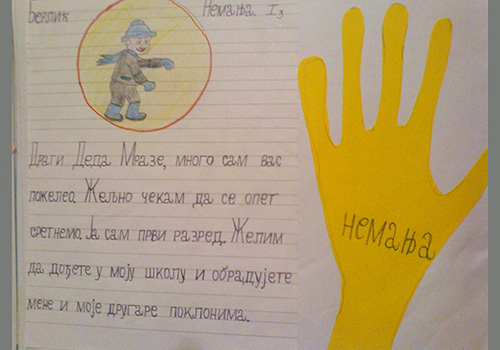 Берлин Немања. I3
Драги Деда Мразе, много сам вас
пожелео. Жељно чекам да се опет
сретнемо. Ја сам први разред. Желим
да дођете у моју школу и обрадујете
мене и моје другаре поклонима.
немања